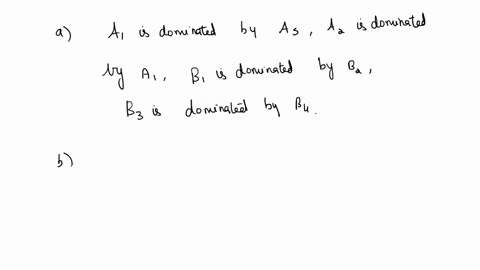 a) A₁ is dominated by A₃, A₂ is dominated
by A₁, B₁ is dominated by B₂,
B₃ is dominated by B₄.
b)